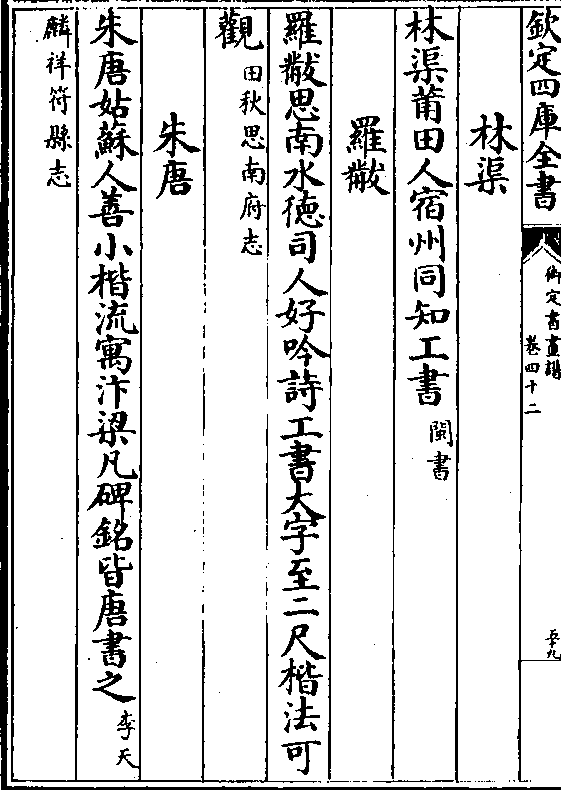 欽定四庫全書
御定書畫譜
卷四十二
五十九
林渠
林渠莆田人宿州同知工書閩書
羅黻
羅黻思南水德司人好吟詩工書大字至二尺楷法可
觀田秋思南府志
朱唐
朱唐姑蘇人善小楷流寓汴梁凡碑銘皆唐書之李天
麟祥符縣志